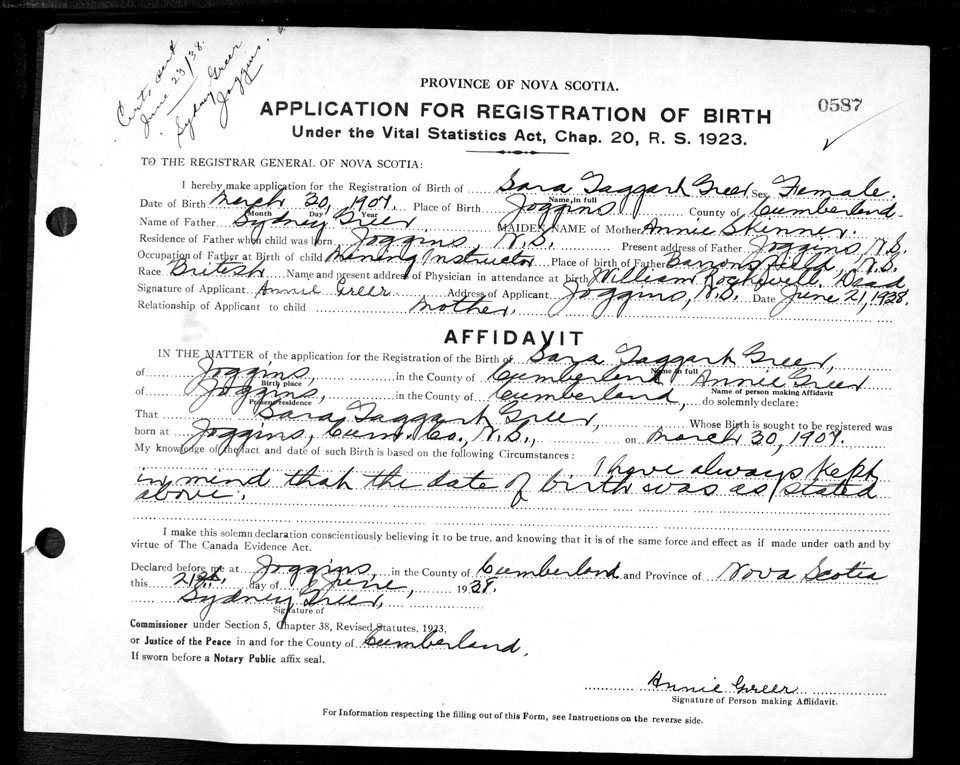 Certs sent
June 23/38.
Sydney Greer
Joggins.
PROVINCE OF NOVA SCOTIA.
APPLICATION FOR REGISTRATION OF BIRTH
0587
Under the Vital Statistics Act, Chap. 20, R. S. 1923.
TO THE REGISTRAR GENERAL OF NOVA SCOTIA:
I hereby make application for the Registration of Birth of Sara Taggart Greer Sex Female.
Name in full
Date of Birth March 30, 1907. Place of Birth Joggins County of Cumberland.
Month Day Year
Name of Father Sydney Greer MAIDEN NAME of Mother Annie Skinner.
Residence of Father when child was born Joggins, N.S. Present address of Father Joggins, N.S.
Occupation of Father at Birth of child Mining Instructor Place of birth of Father Barronsfield, N.S.
Race British Name and present address of Physician in attendance at birth William Rockwell. Dead
Signature of Applicant Annie Greer Address of Applicant Joggins, N.S. Date June 21, 1938.
Relationship of Applicant to child mother.
AFFIDAVIT
IN THE MATTER of the application for the Registration of the Birth of Sara Taggart Greer,
Name in full
of Joggins, in the County of Cumberland Annie Greer
Birth place Name of person making Affidavit
of Joggins, in the County of Cumberland, do solemnly declare:
Present residence
That Sara Taggart Greer, Whose Birth is sought to be registered was
born at Joggins, Cum. Co., N.S., on March 30, 1907.
My knowledge of the fact and date of such Birth is based on the following Circumstances:
I have always kept
in mind that the date of birth was as stated
above.
I make this solemn declaration conscientiously believing it to be true, and knowing that it is of the same force and effect as if made under oath and by
virtue of The Canada Evidence Act.
Declared before me at Joggins, in the County of Cumberland and Province of Nova Scotia
this 21st, day of June, 1938.
Sydney Greer,
Signature of
Commissioner under Section 5, Chapter 38, Revised Statutes, 1923,
or Justice of the Peace in and for the County of Cumberland.
If sworn before a Notary Public affix seal.
Annie Greer
Signature of Person making Affidavit.
For Information respecting the filling out of this Form, see Instructions on the reverse side.